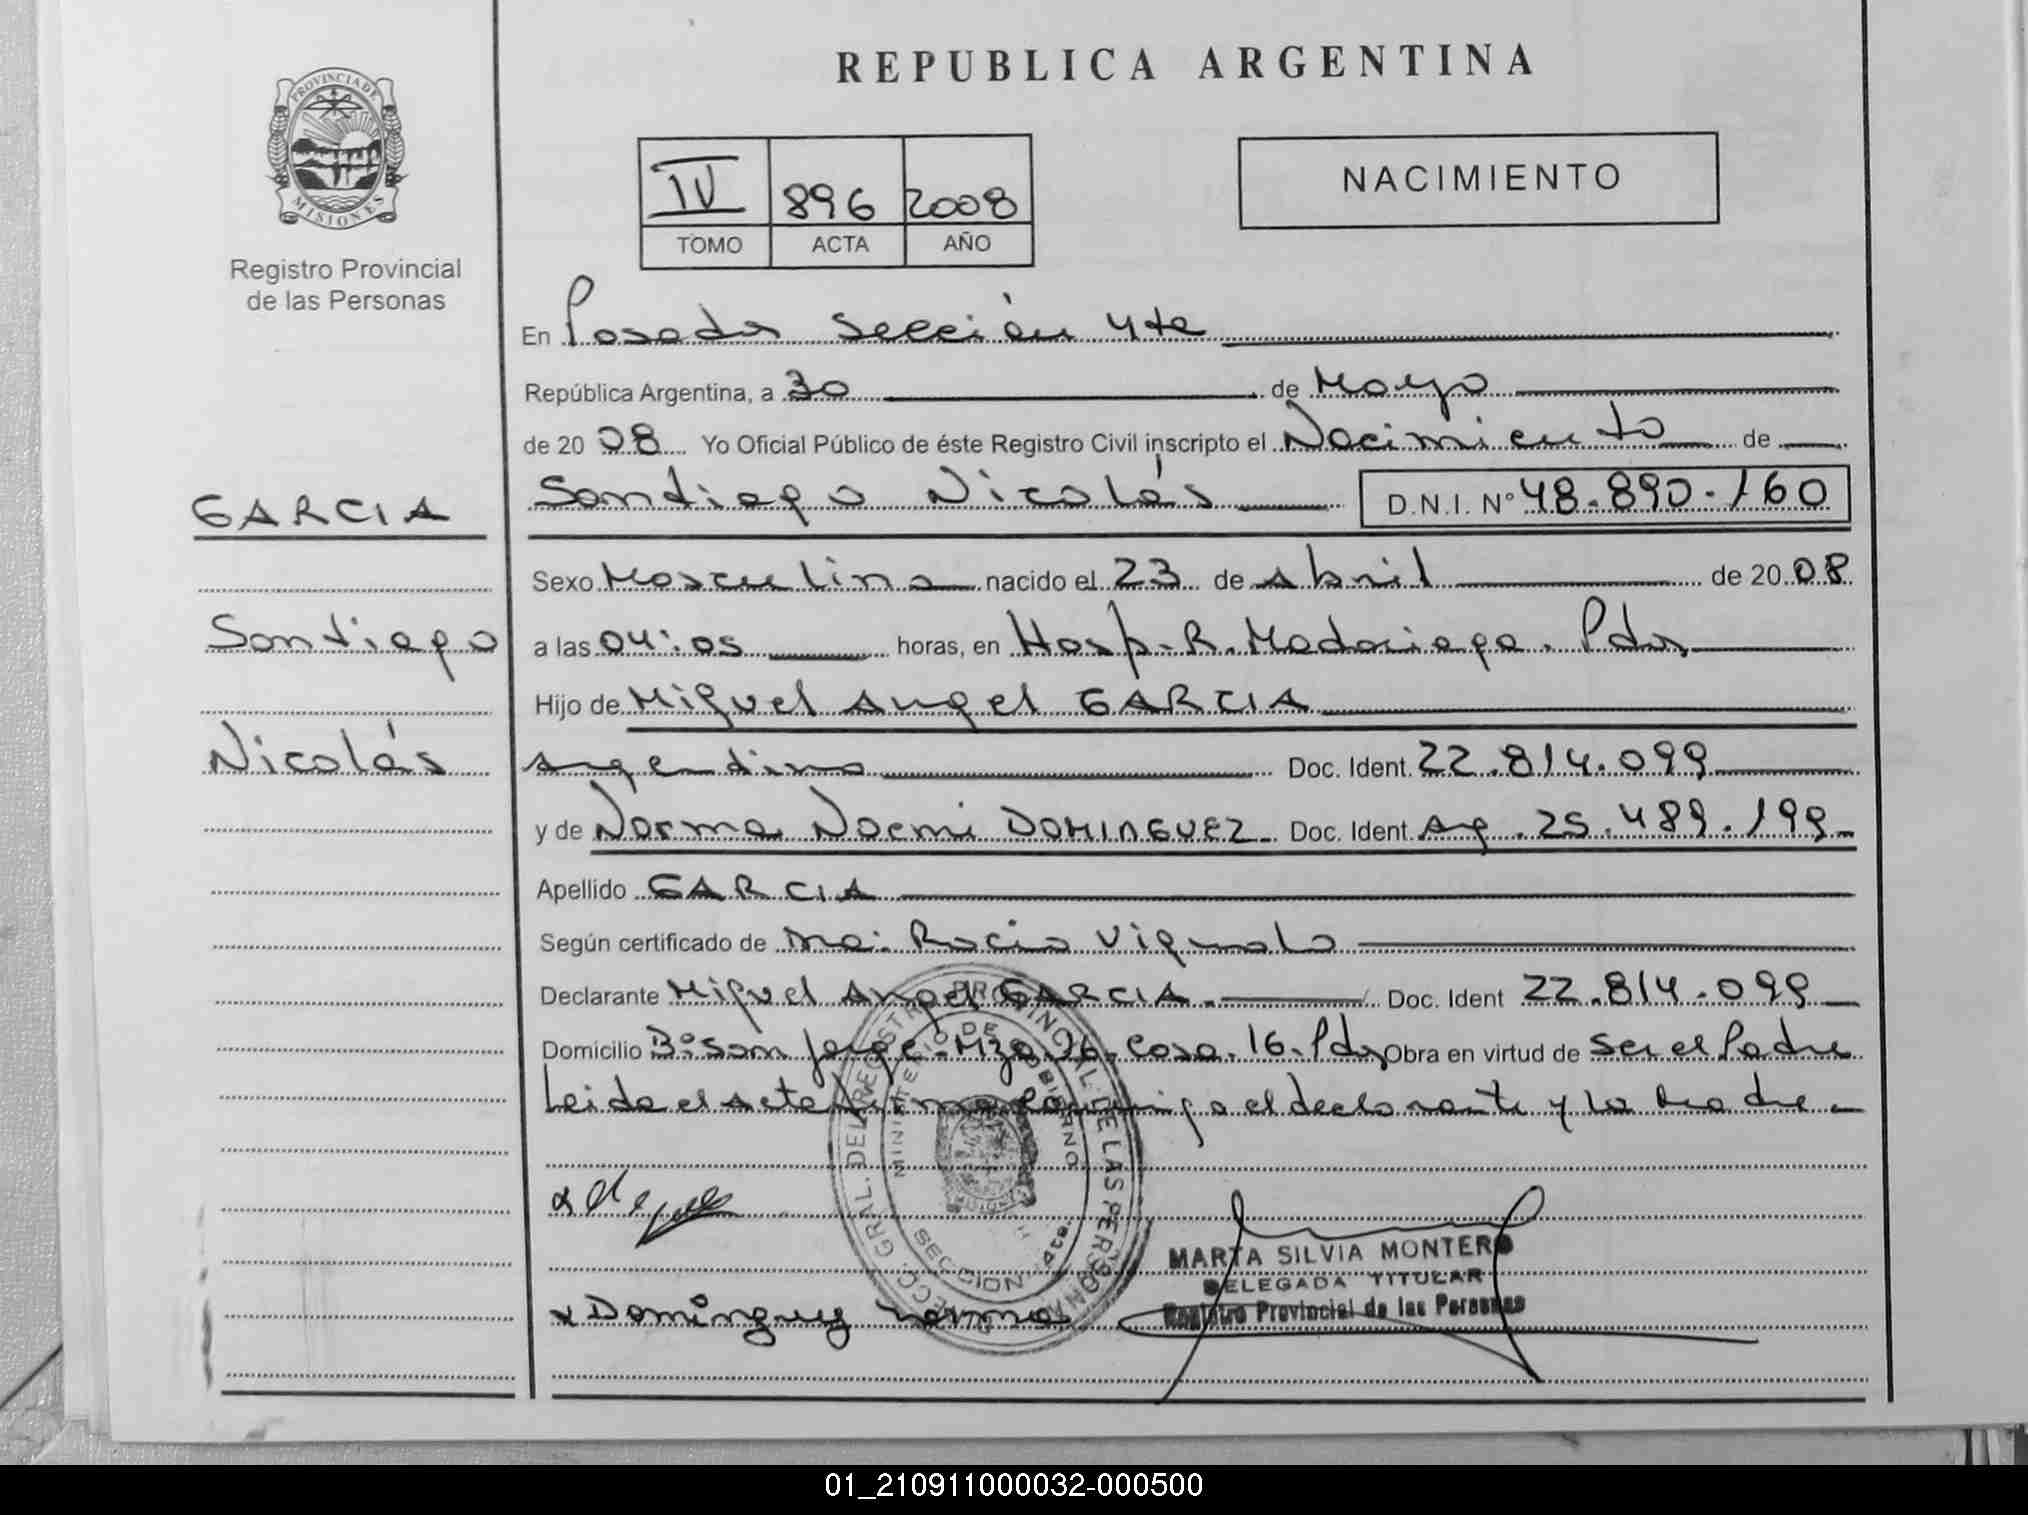 REPUBLICA ARGENTINA
PROVINCIA DE MISIONES
Registro Provincial
de las Personas
IV 896 2008
TOMO ACTA AÑO
NACIMIENTO
En Posadas Sección 4ta
República Argentina, a 30 de Mayo
de 2008 Yo Oficial Público de éste Registro Civil inscripto el Nacimiento de
GARCIA
Santiago
Nicolás
Santiago Nicolás D.N.I. Nº 48.890.160
Sexo Masculino nacido el 23 de Abril de 2008
a las 04:05 horas, en Hosp. R. Madariaga. Pdas
Hijo de Miguel Angel GARCIA
Argentino Doc. Ident. 22.814.099
y de Norma Noemi DOMINGUEZ Doc. Ident. Arg. 25.489.199
Apellido GARCIA
Según certificado de Ma. Rocio
Declarante Miguel Angel GARCIA. Doc. Ident 22.814.099
Domicilio Bº San Jorge. Mza. 26. Casa. 16. Pdas Obra en virtud de ser el Padre
Leida el acta firma conmigo el declarante y la Madre
DIRECC. GRAL. DEL REGISTRO PROVINCIAL DE LAS PERSONAS
MINISTERIO DE GOBIERNO
SECCION 4ta.
x Dominguez Norma
MARTA SILVIA MONTERO
DELEGADA TITULAR
Registro Provincial de las Personas
01_210911000032-000500